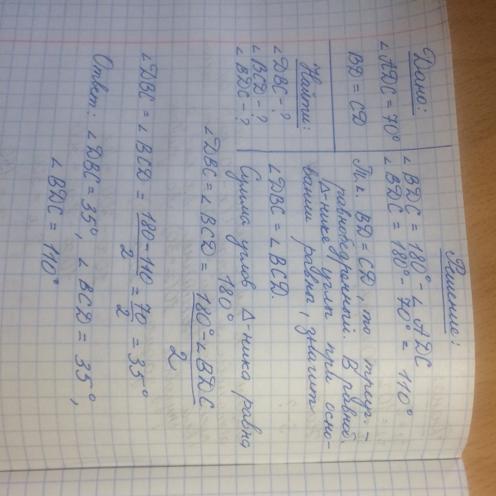 Решение:
Дано:
∠ADC = 70°
BD = CD
Найти:
∠DBC - ?
∠BCD - ?
∠BDC - ?
∠BDC = 180° - ∠ADC
∠BDC = 180° - 70° = 110°
Т.к. BD = CD, то треуг. -
равнобедренный. В равноб.
Δ-нике углы при осно-
вании равны, значит
∠DBC = ∠BCD.
Сумма углов Δ-ника равна
180°
∠DBC = ∠BCD = 180° - ∠BDC / 2
∠DBC = ∠BCD = 180 - 110 / 2 = 70 / 2 = 35°
Ответ: ∠DBC = 35°, ∠BCD = 35°,
∠BDC = 110°